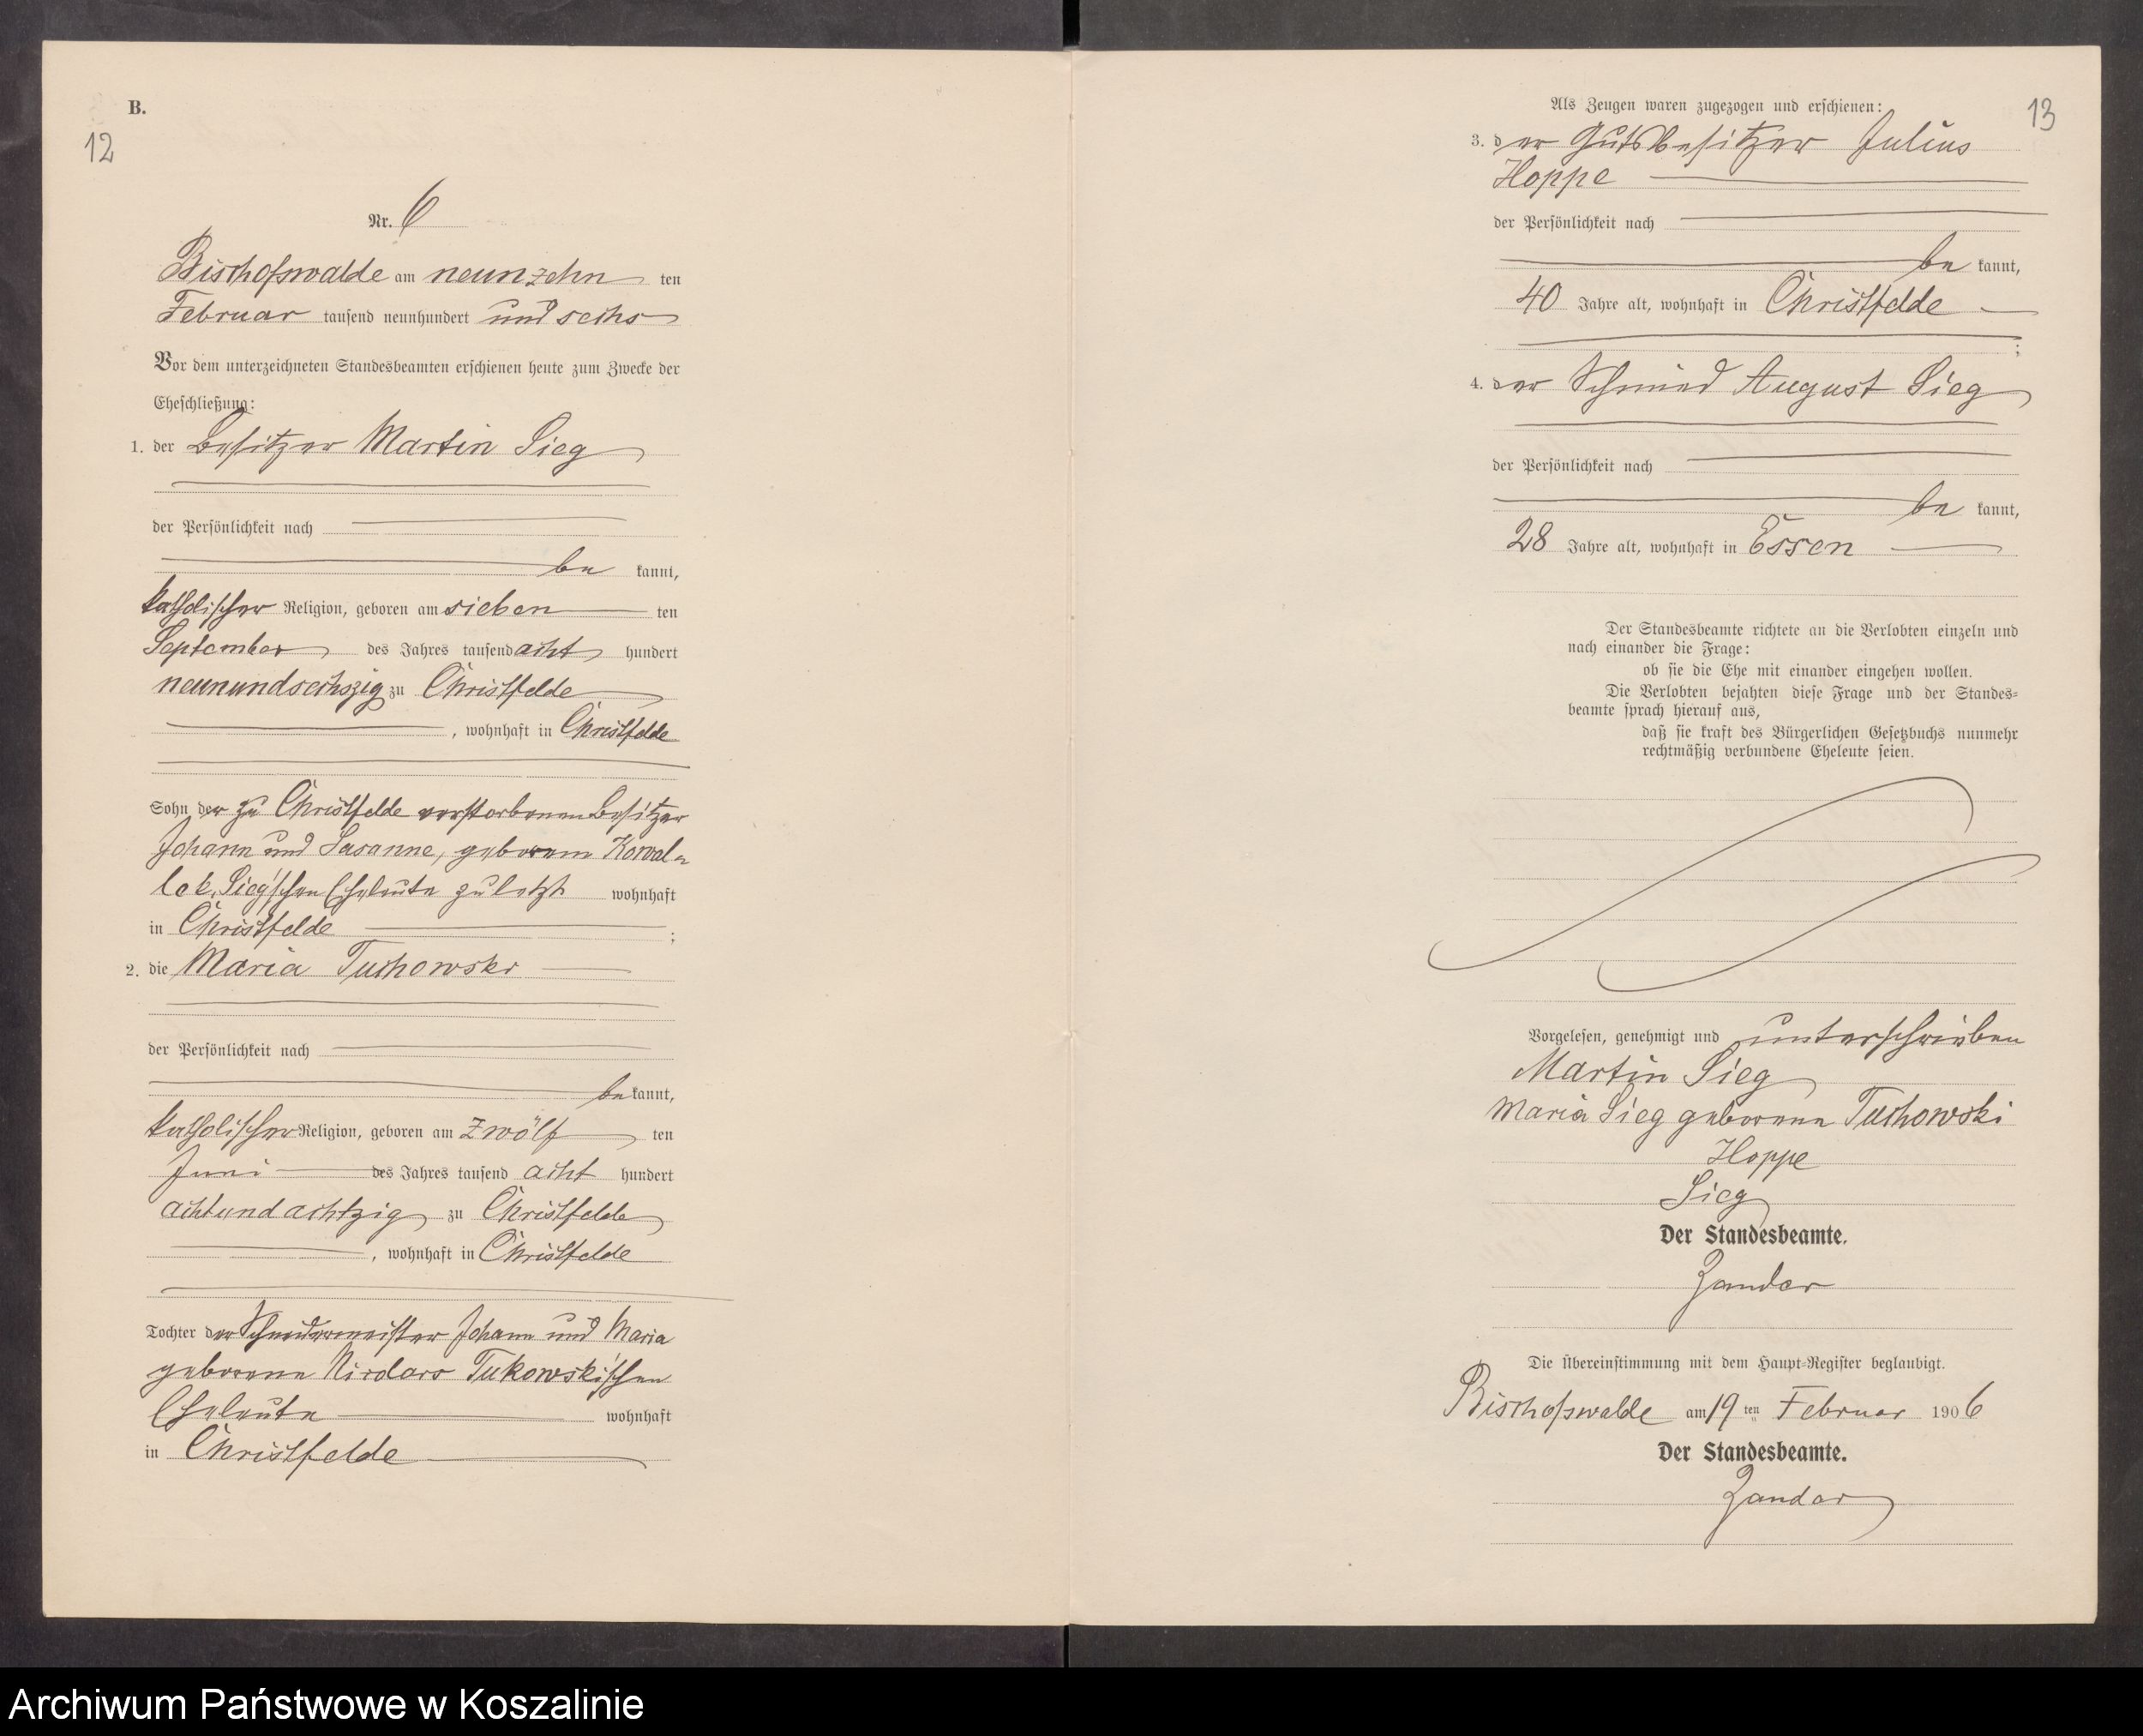 B.
12
Nr. 6
Bischofswalde am neunzehn ten
Februar tausend neunhundert und sechs
Vor dem unterzeichneten Standesbeamten erschienen heute zum Zwecke der
Eheschließung:
1. der Besitzer Martin Sieg
der Persönlichkeit nach
be kannt,
katholischer Religion, geboren am sieben ten
September des Jahres tausend acht hundert
neunundsechszig zu Christfelde
, wohnhaft in Christfelde
Sohn der zu Christfelde verstorbenen Besitzer
Johann und Susanne, geborene
Sieg'schen Eheleute zuletzt wohnhaft
in Christfelde ;
2. die Maria Tuchowski
der Persönlichkeit nach
be kannt,
katholischer Religion, geboren am zwölf ten
Juni des Jahres tausend acht hundert
achtundachtzig zu Christfelde
, wohnhaft in Christfelde
Tochter der Schneidermeister Johann und Maria
geborene Tukowski'schen
Eheleute wohnhaft
in Christfelde
13
Als Zeugen waren zugezogen und erschienen:
3. der Gutsbesitzer Julius
Hoppe
der Persönlichkeit nach
be kannt,
40 Jahre alt, wohnhaft in Christfelde
;
4. der Schmied August Sieg
der Persönlichkeit nach
be kannt,
28 Jahre alt, wohnhaft in Essen
Der Standesbeamte richtete an die Verlobten einzeln und
nach einander die Frage:
ob sie die Ehe mit einander eingehen wollen.
Die Verlobten bejahten diese Frage und der Standes=
beamte sprach hierauf aus,
daß sie kraft des Bürgerlichen Gesetzbuchs nunmehr
rechtmäßig verbundene Eheleute seien.
Vorgelesen, genehmigt und unterschrieben
Martin Sieg
Maria Sieg geborene Tuchowski
Hoppe
Sieg
Der Standesbeamte.
Zander
Die Übereinstimmung mit dem Haupt=Register beglaubigt.
Bischofswalde am 19 ten Februar 1906
Der Standesbeamte.
Zander
Archiwum Państwowe w Koszalinie